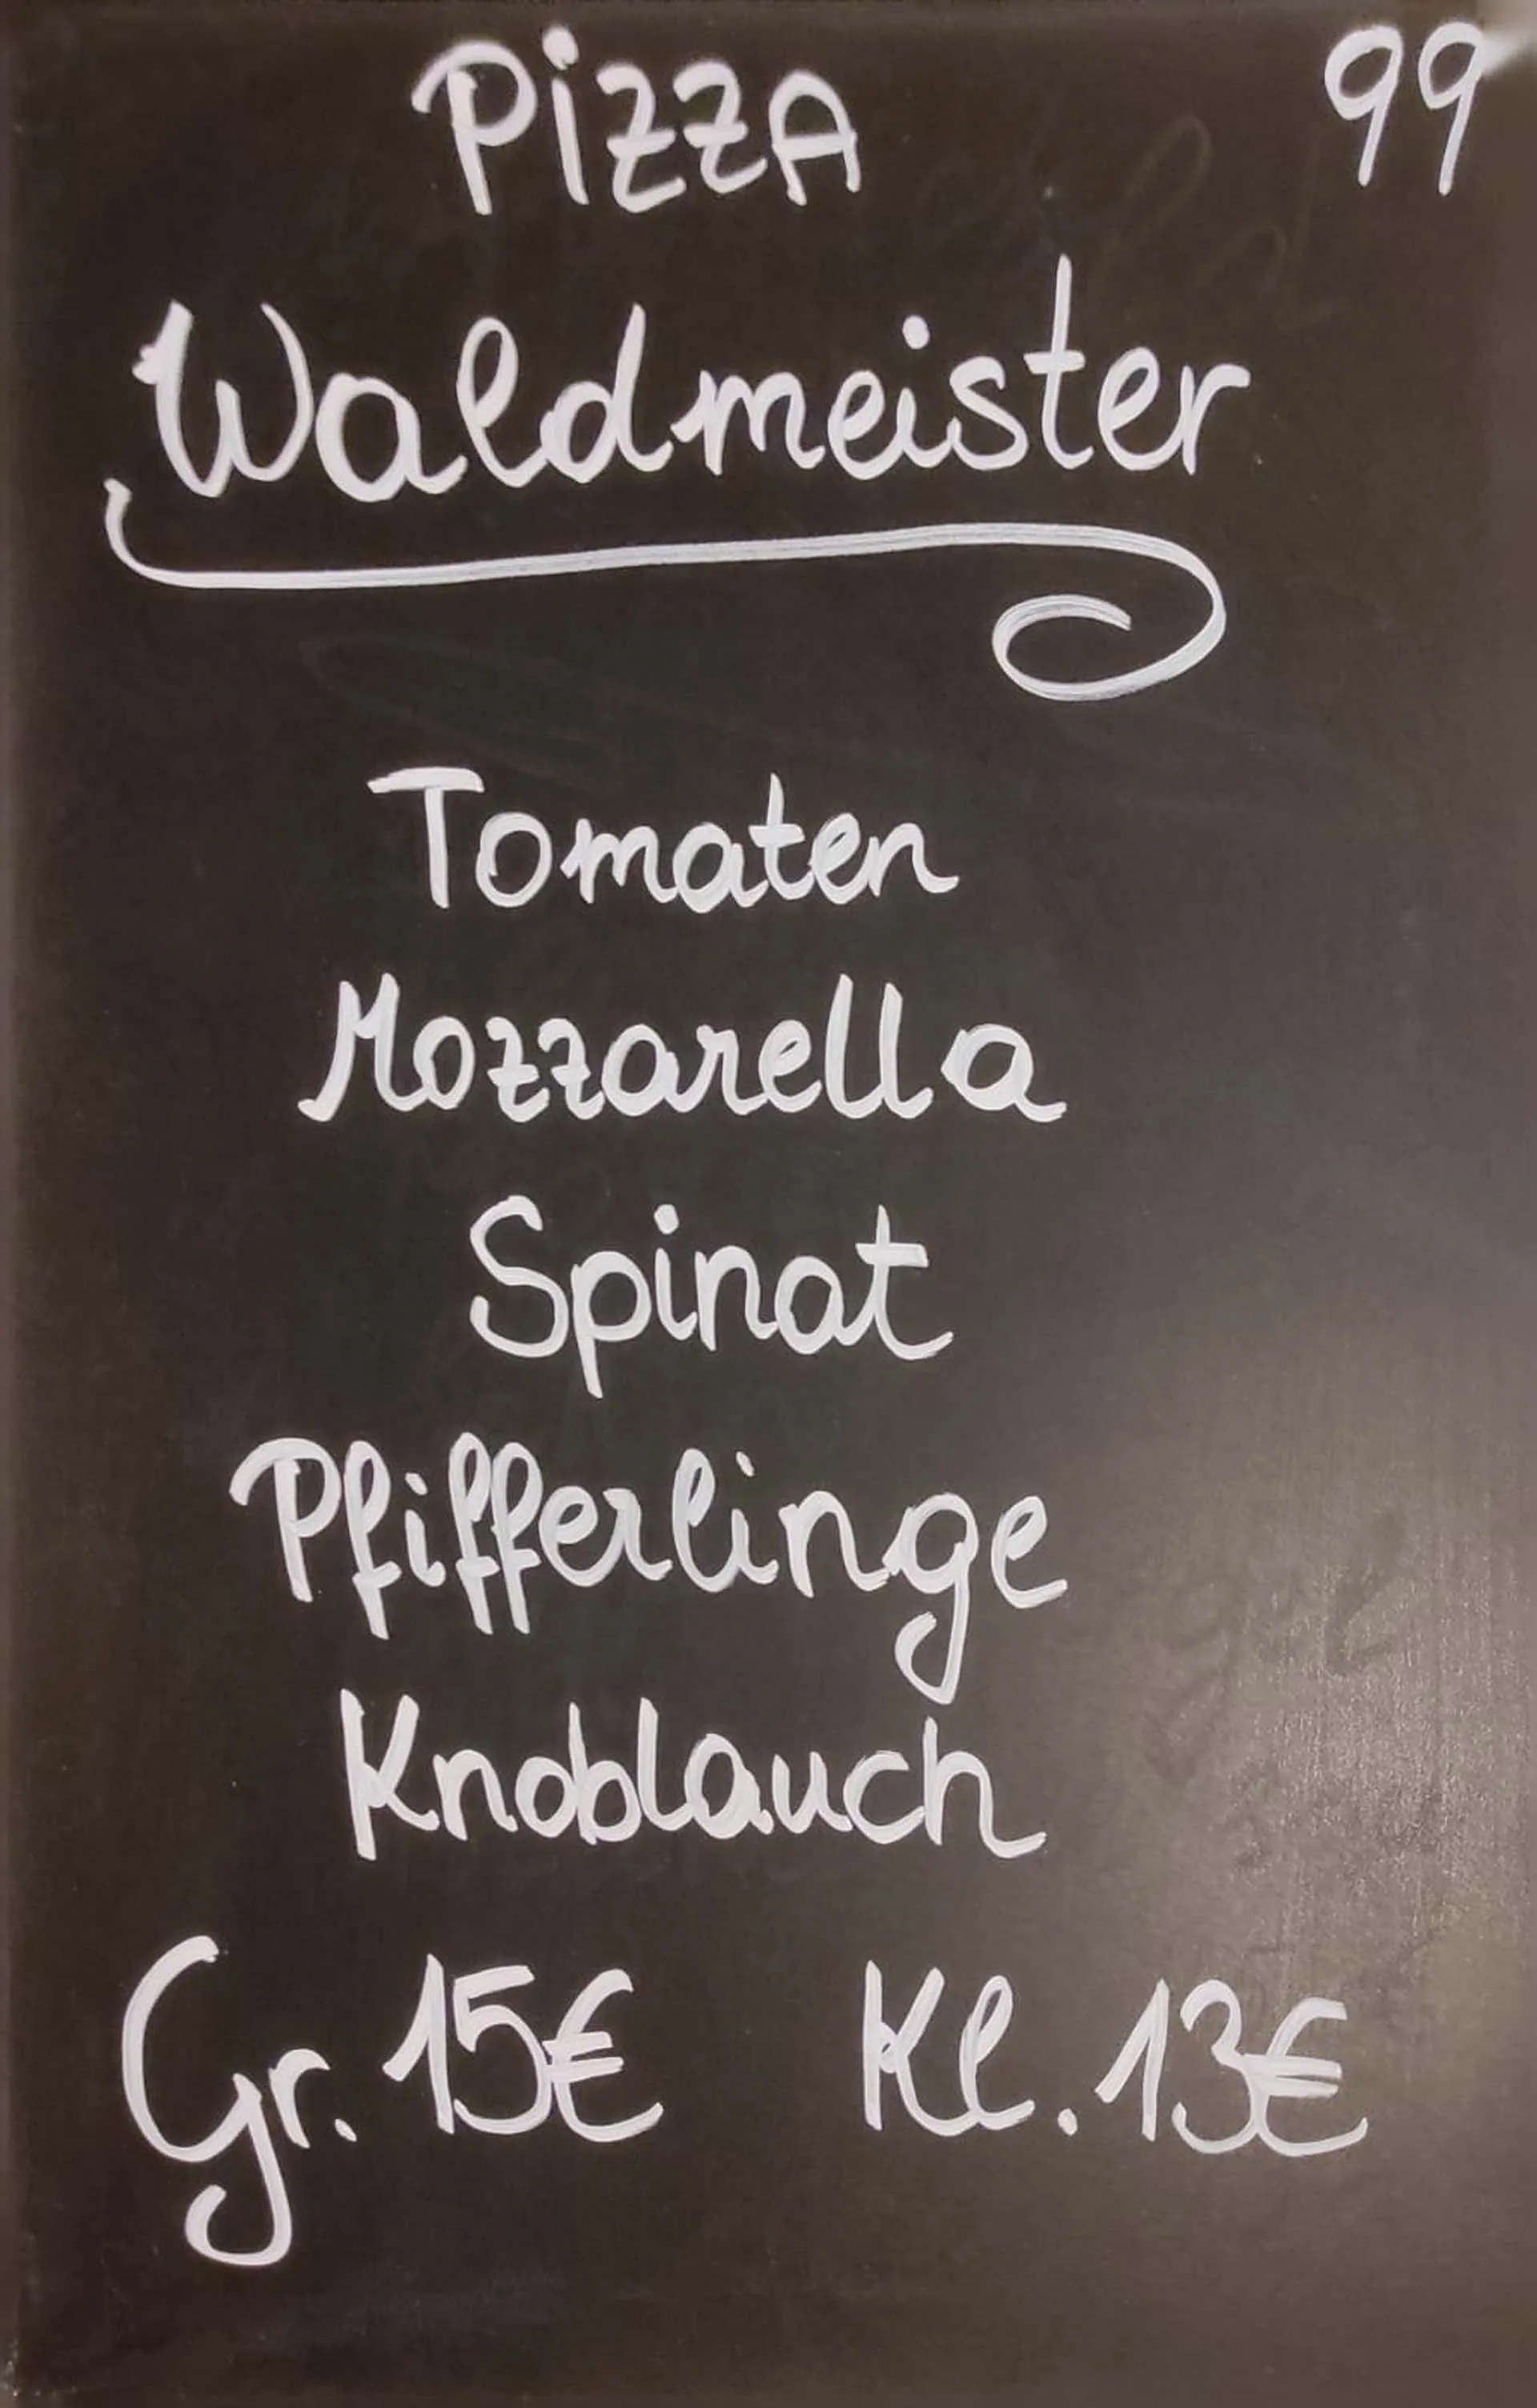 PizzA 99
Waldmeister
Tomaten
Mozzarella
Spinat
Pfifferlinge
Knoblauch
Gr. 15€ Kl. 13€